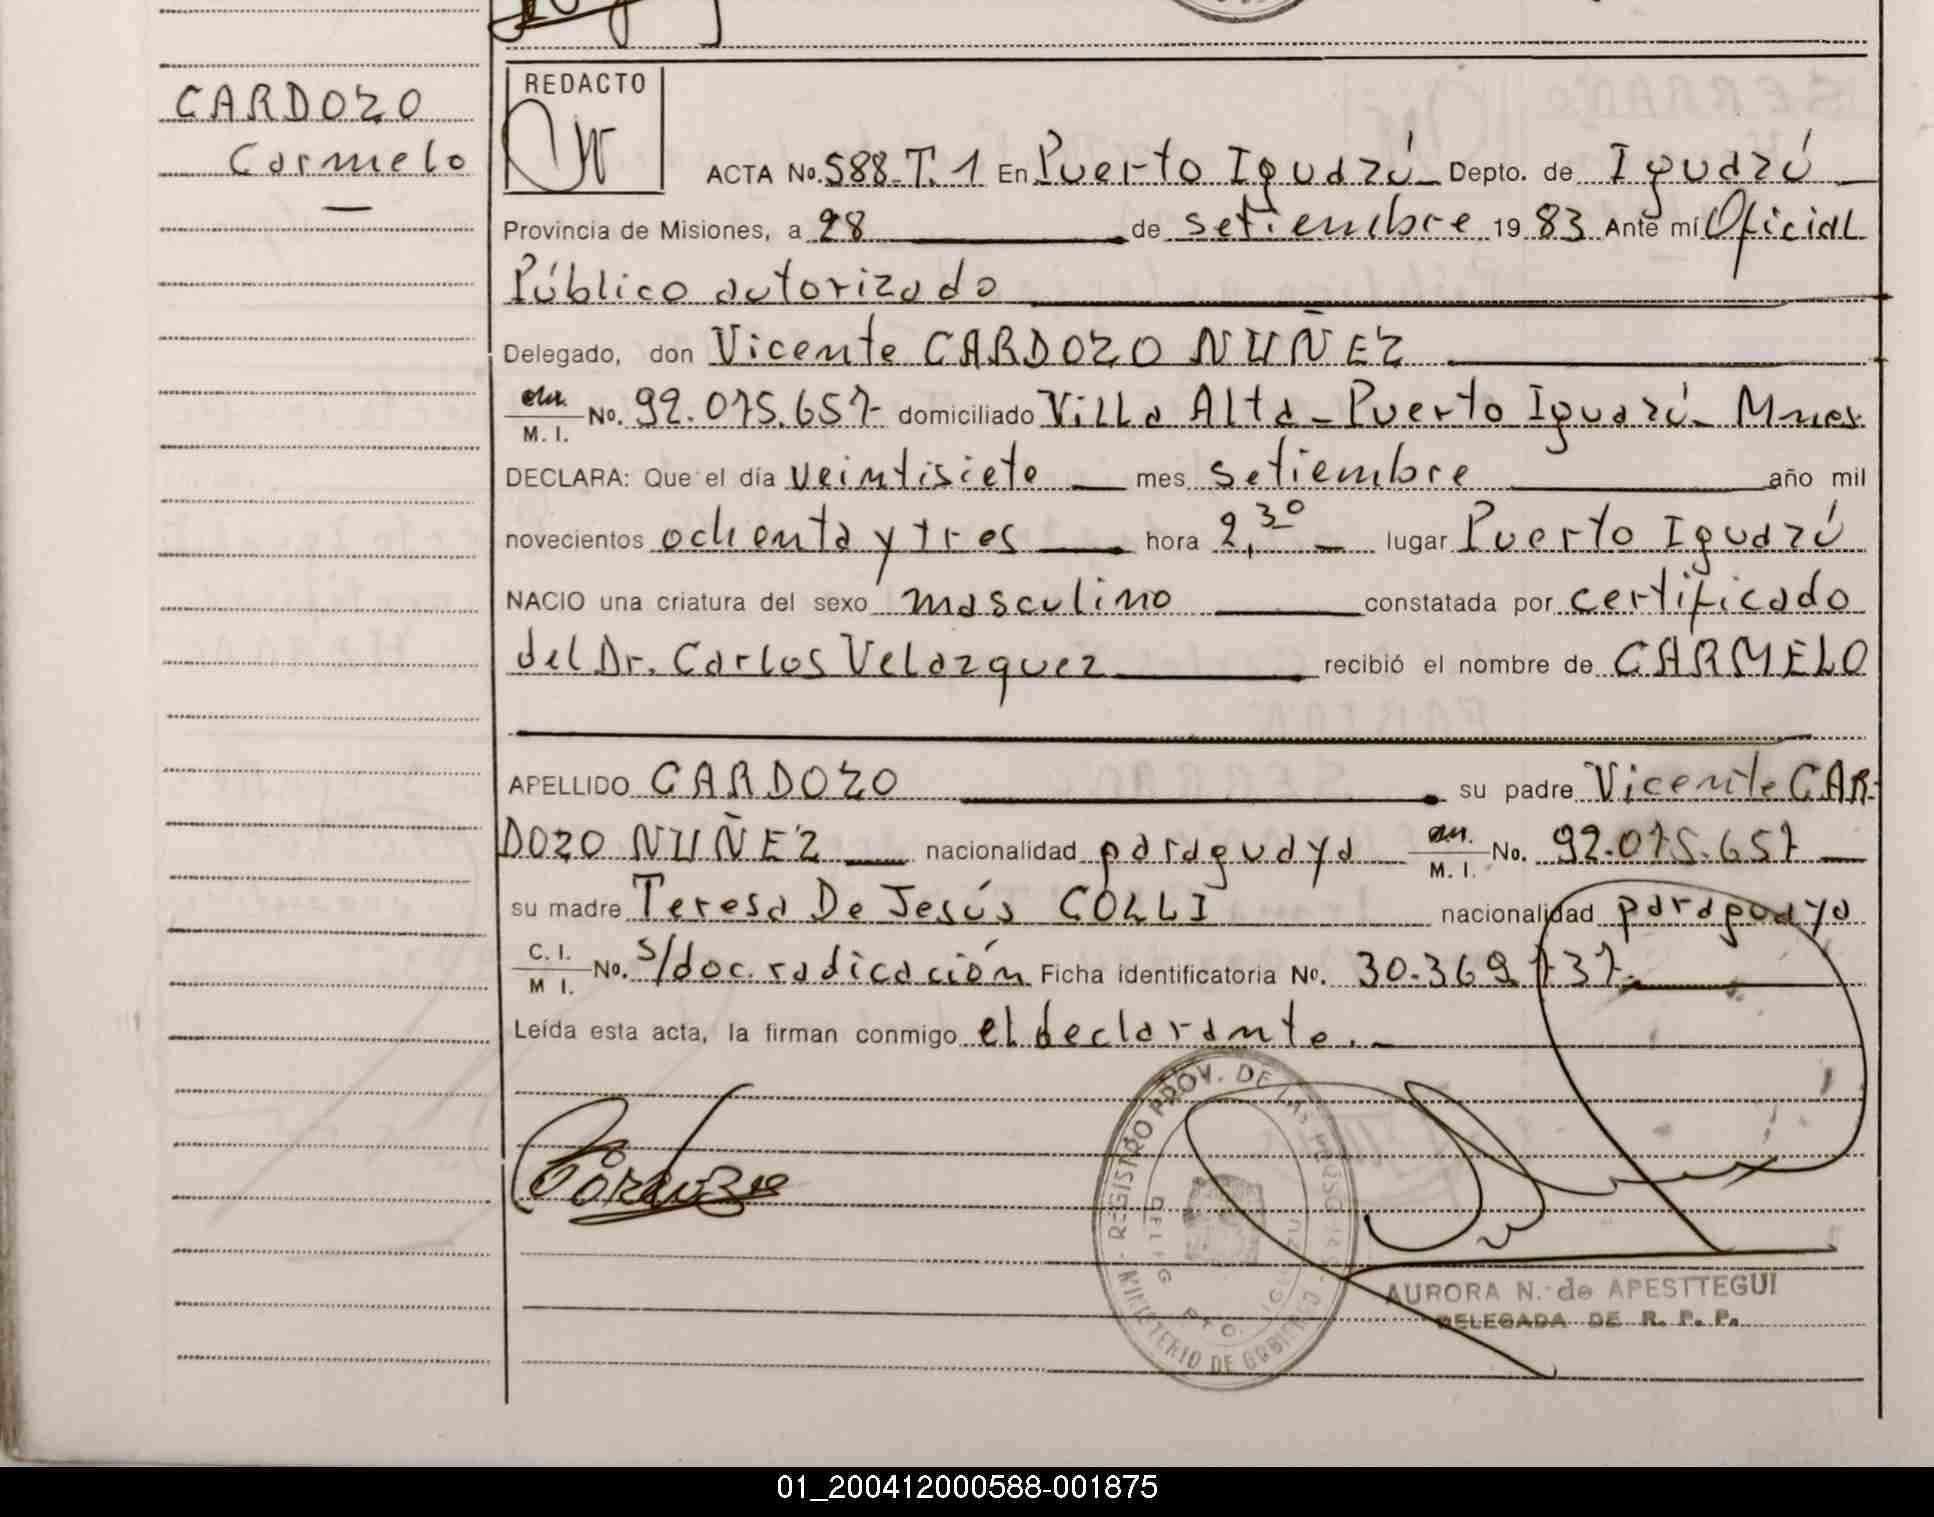 CARDOZO
Carmelo
REDACTO
ACTA No. 588-T.1 En Puerto Iguazú Depto. de Iguazú
Provincia de Misiones, a 28 de setiembre 1983 Ante mí Oficial
Público autorizado
Delegado, don Vicente CARDOZO NUÑEZ
M. I. No. 92.075.657- domiciliado Villa Alta - Puerto Iguazú - Mnes
DECLARA: Que el día veintisiete mes setiembre año mil
novecientos ochenta y tres hora 2,30 lugar Puerto Iguazú
NACIO una criatura del sexo masculino constatada por certificado
del Dr. Carlos Velazquez recibió el nombre de CARMELO
APELLIDO CARDOZO su padre Vicente CAR-
DOZO NUÑEZ nacionalidad paraguaya M. I. No. 92.075.657
su madre Teresa De Jesús COLLI nacionalidad paraguaya
C. I. M I. No. s/doc. radicación Ficha identificatoria No. 30.369.737.
Leída esta acta, la firman conmigo el declarante.
Cardozo
REGISTRO PROV. DE LAS PERSONAS
MINISTERIO DE GOBIERNO
AURORA N. de APESTTEGUI
DELEGADA DE R. P. P.
01_200412000588-001875